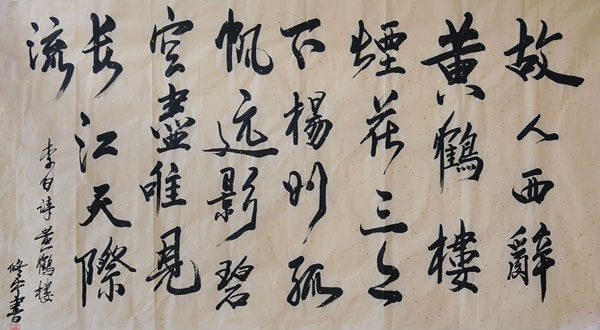 故人西辭
黄鶴樓
煙花三月
下楊州孤
帆远影碧
空盡唯見
長江天際
流
李白诗黄鶴樓
書